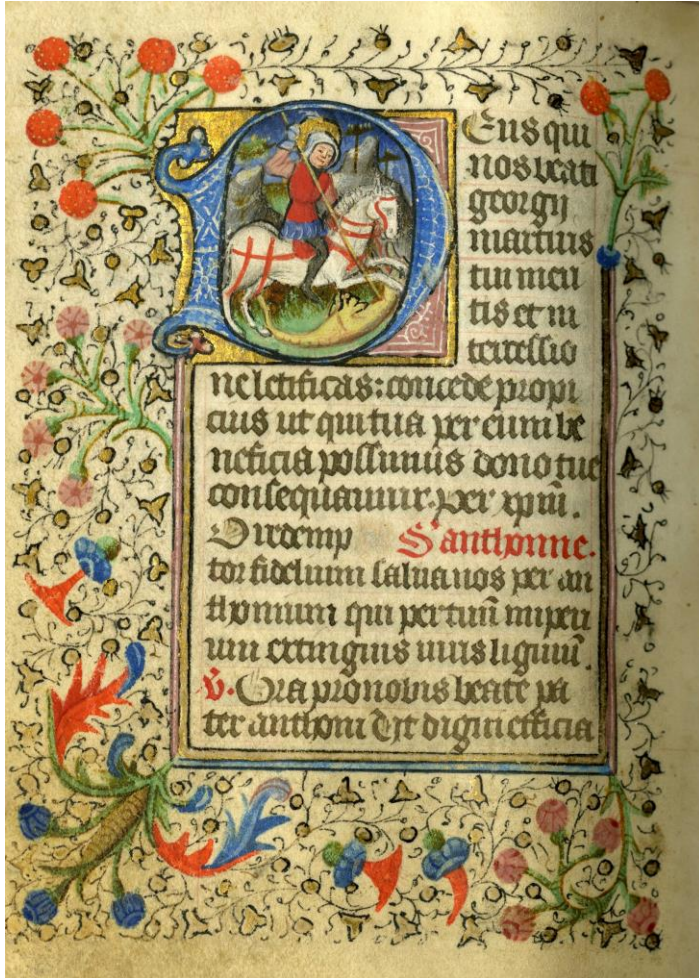 DEus qui
nos beati
georgij
martiris
tui meri
tis et in
tercessio
ne letificas: concede propi
cius ut qui tua per eum be
neficia possumus dono tue
consequamur. per xpm̄.
O redemp S' anthonne.
tor fidelium salua nos per an
thonium qui per tuū imperi
um extinguis ligniū.
v. Ora pro nobis beate pa
ter anthoni digni efficia